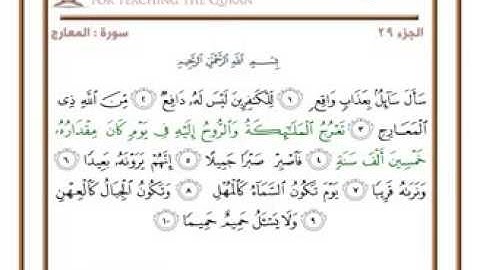 FOR TEACHING THE QURAN
الجزء ٢٩
سورة : المعارج
بِسْمِ اللَّهِ الرَّحْمَٰنِ الرَّحِيمِ
سَأَلَ سَآئِلٌۢ بِعَذَابٍ وَاقِعٍ ١ لِّلْكَٰفِرِينَ لَيْسَ لَهُۥ دَافِعٌ ٢ مِّنَ ٱللَّهِ ذِى
ٱلْمَعَارِجِ ٣ تَعْرُجُ ٱلْمَلَٰٓئِكَةُ وَٱلرُّوحُ إِلَيْهِ فِى يَوْمٍ كَانَ مِقْدَارُهُۥ
خَمْسِينَ أَلْفَ سَنَةٍ ٤ فَٱصْبِرْ صَبْرًا جَمِيلًا ٥ إِنَّهُمْ يَرَوْنَهُۥ بَعِيدًا ٦
وَنَرَىٰهُ قَرِيبًا ٧ يَوْمَ تَكُونُ ٱلسَّمَآءُ كَٱلْمُهْلِ ٨ وَتَكُونُ ٱلْجِبَالُ كَٱلْعِهْنِ
٩ وَلَا يَسْـَٔلُ حَمِيمٌ حَمِيمًا ١٠